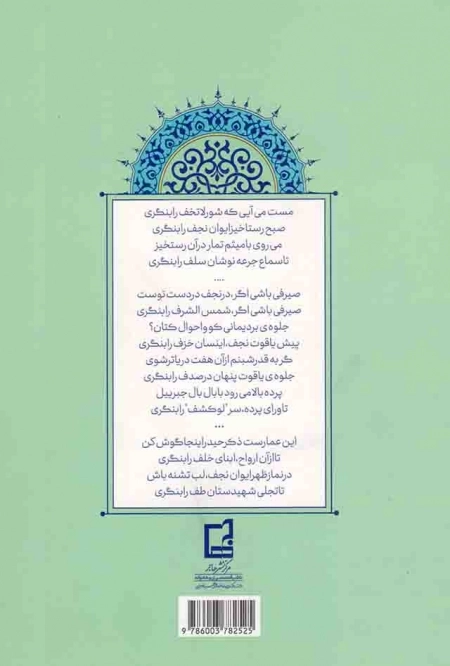 مست می آیی که شور لاتخف را بنگری
صبح رستاخیز ایوان نجف را بنگری
می روی با میثم تمار در آن رستخیز
تا سماع جرعه نوشان سلف را بنگری
....
صیرفی باشی اگر، در نجف در دست توست
صیرفی باشی اگر، شمس الشرف را بنگری
جلوه ی برد یمانی کو و احوال کتان؟
پیش یاقوت نجف، اینسان خزف را بنگری
گر به قدر شبنم از آن هفت دریا تر شوی
جلوه ی یاقوت پنهان در صدف را بنگری
پرده بالا می رود با بال بال جبرییل
تا ورای پرده، سر "لو کشف" را بنگری
...
این عمارست ذکر حیدر اینجا گوش کن
تا از آن ارواح، ابنای خلف را بنگری
در نماز ظهر ایوان نجف، لب تشنه باش
تا تجلی شهیدستان طف را بنگری
9 786003 782525